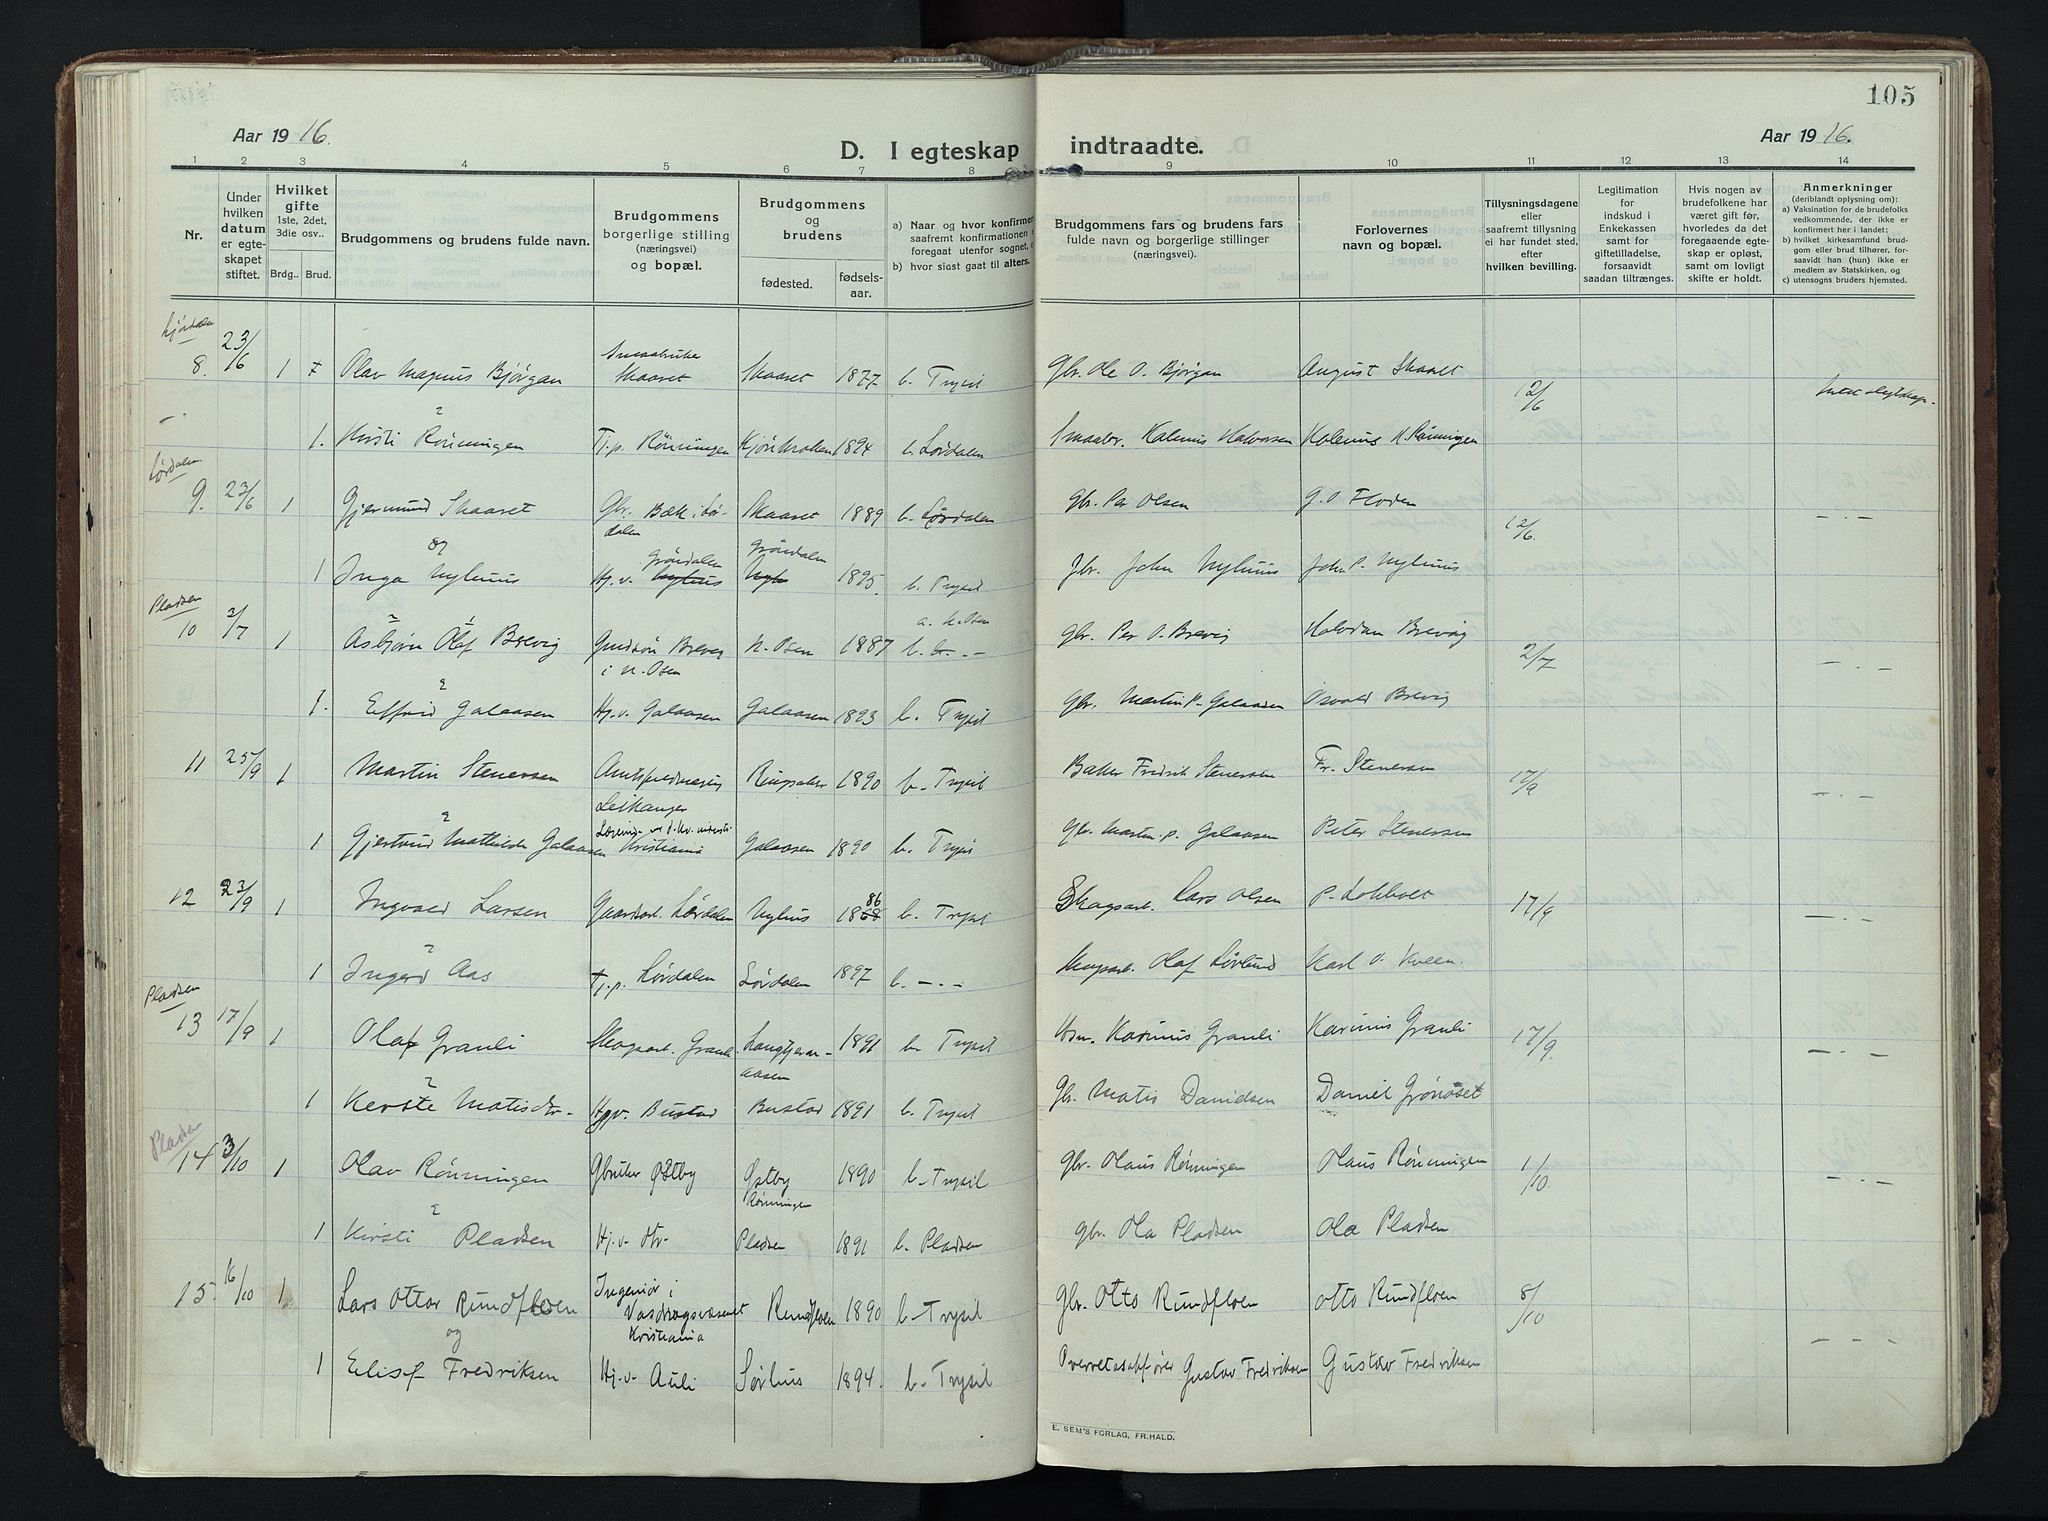 105
Aar 1916.
D. I egteskap indtraadte.
Aar 1916.
1 2 3 4 5 6 7 8 9 10 11 12 13 14
Nr.
Under hvilken datum er egteskapet stiftet.
Hvilket gifte 1ste, 2det, 3die osv..
Brdg.. Brud.
Brudgommens og brudens fulde navn.
Brudgommens borgerlige stilling (næringsvei) og bopæl.
Brudgommens og brudens
fødested. fødselsaar.
a) Naar og hvor konfirmer
saafremt konfirmationen
foregaat utenfor sognet,
b) hvor sisst gaat til alters.
Brudgommens fars og brudens fars fulde navn og borgerlige stillinger (næringsvei).
Forlovernes navn og bopæl.
Tillysningsdagene eller saafremt tillysning ei har fundet sted, efter hvilken bevilling.
Legitimation for indskud i Enkekassen samt for giftetilladelse, forsaavidt saadan tiltrænges.
Hvis nogen av brudefolkene har været gift før, hvorledes da det foregaaende egteskap er opløst, samt om lovligt skifte er holdt.
Anmerkninger (deriblandt oplysning om): a) Vaksination for de brudefolks vedkommende, der ikke er konfirmert her i landet; b) hvilket kirkesamfund brudgom eller brud tilhører, forsaavidt han (hun) ikke er medlem av Statskirken, og c) utensogns bruders hjemsted.
8. 23/6 1 Olav Magnus Bjørgan Smaabruker Skaaret Skaaret 1877 b. Trysil Gbr. Ole O. Bjørgan August Skaaret 12/6
1. Kirsti Rønningen Tj.p. Rønningen 1894 b. Lørdalen Smaabr. Kalenius Halvorsen Kolenius H. Rønningen
Lørdalen
9. 23/6 1 Gjermund Skaaret Gbr. Bæk i Lørdalen Skaaret 1889 b. Lørdalen Gbr. Per Olsen G. O. Floden 12/6. - . -
og
1 Inga Nylunus Hj.v. Grøndalen Grøndalen 1895. b. Trysil Gbr. John Nylunus John P. Nylunus
Pladsen
10 2/7 1 Asbjørn Olaf Brevig Brevig i N. Osen N. Osen 1887 a. N. Osen b. - . - Gbr. Per O. Brevig Halvdan Brevig 2/7 - . -
1. Elfrid Galaasen Hj.v. Galaasen Galaasen 1893 b. Trysil Gbr. Martin P. Galaasen Osvald Brevig
11 25/9 1 Martin Stenersen Leikanger 1890 b. Trysil Baker Fredrik Stenersen Fr. Stenersen 17/9 - . -
1 Gjertrud Mathilde Galaasen Kristiania Galaasen 1890 b. Trysil Gbr. Martin P. Galaasen Peter Stenersen
12 23/9 1 Ingvald Larsen Gaardarb. Lørdalen Nyhus 1886 b. Trysil Skogsarb. Lars Olsen P. Lokholt 17/9 - . -
1 Ingerd Aas Tj.p. Lørdalen Lørdalen 1897 b. - . - Skogsarb. Olaf Løvlund Karl O. Kveen.
Pladsen
13 17/9 1 Olaf Granli Skogsarb. Granli Langtjernaasen 1891 b. Trysil Hsm. Karinius Granli Karinius Granli 17/9. - . -
1 Kerste Matisdtr. Hj.v. Bustad Bustad 1891 b. Trysil Gbr. Matis Danidsen Daniel Grønoset
Pladsen
14 3/10 1 Olav Rønningen Gbruker Østby Østby Rønningen 1890 b. Trysil Gbr. Olaus Rønningen Olaus Rønningen 1/10. - . -
1 Kirsti Pladsen Hj.v. Pladsen 1891 b. Pladsen Gbr. Ola Pladsen Ola Pladsen
15. 16/10 1 Lars Ottar Rundfloen Ingeniør i Vasdragsvæsenet Kristiania Rundfloen 1890 b. Trysil Gbr. Otto Rundfloen Otto Rundfloen 8/10
og
1 Elisef Fredriksen Hj.v. Auli Sørhus 1894. b. Trysil Overretssakfører Gustav Fredriksen Gustav Fredriksen - . -
E. SEM'S FORLAG, FR.HALD.